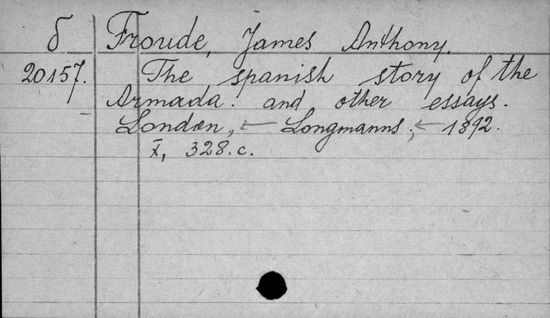 б Froude, James Anthony.
20157. The spanish story of the
Armada. and other essays.
London, ← Longmanns, ← 1892.
X, 328.c.